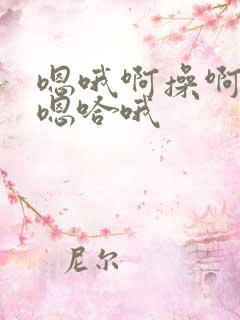 嗯哦啊操啊
嗯哈哦
尼尔